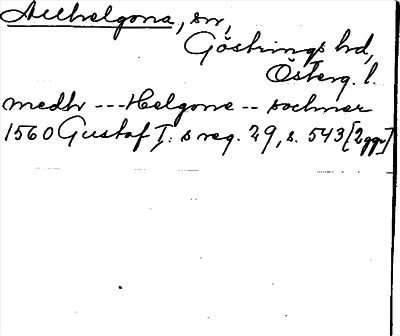 Allhelgona, sn,
Göstrings hd,
Österg. l.
medh --- Helgone -- sochner
1560 Gustaf I:s reg. 29, s. 543 [2 ggr]